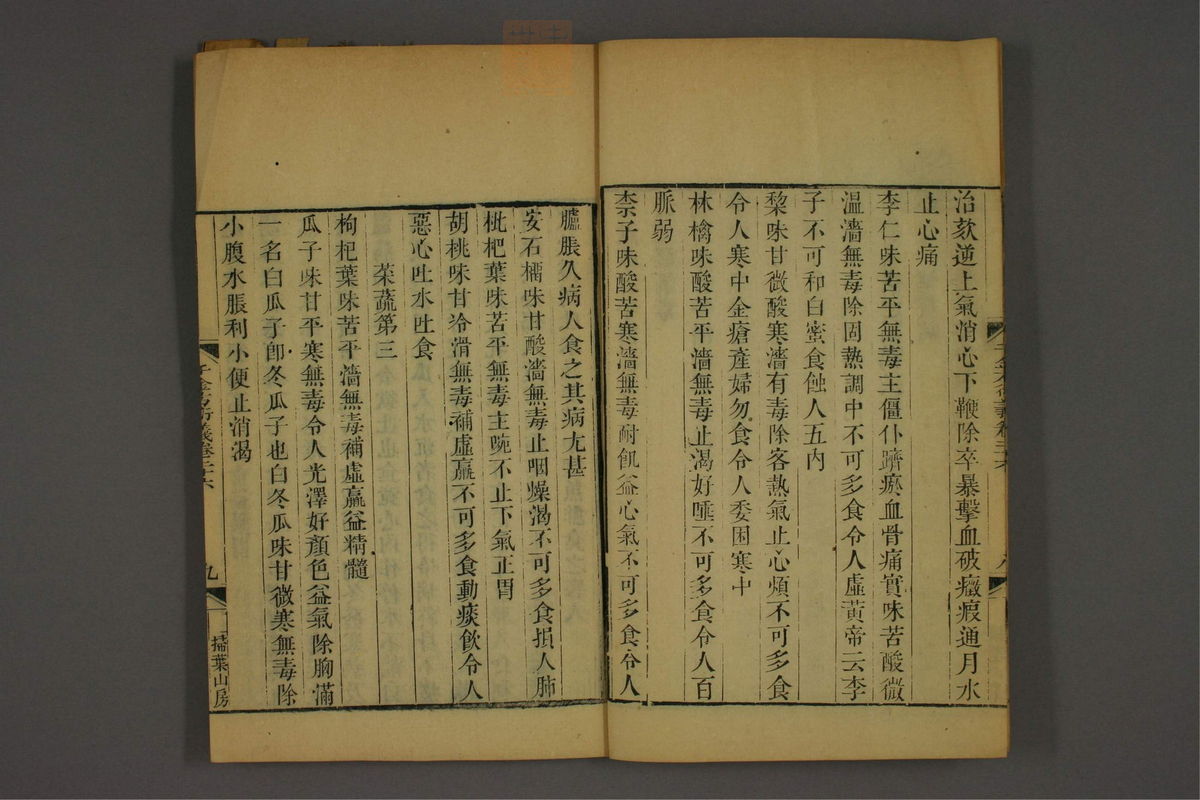 治欬逆上氣消心下鞕除卒暴擊血破癥瘕通月水
止心痛
李仁味苦平無毒主僵仆躋瘀血骨痛實味苦酸微
温濇無毒除固熱調中不可多食令人虛黃帝云李
子不可和白蜜食蝕人五內
棃味甘微酸寒濇有毒除客熱氣止心煩不可多食
令人寒中金瘡產婦勿食令人委困寒中
林檎味酸苦平濇無毒止渴好唾不可多食令人百
脈弱
柰子味酸苦寒濇無毒耐飢益心氣不可多食令人
臚脹久病人食之其病尤甚
安石橊味甘酸濇無毒止咽燥渴不可多食損人肺
枇杷葉味苦平無毒主啘不止下氣正胃
胡桃味甘冷滑無毒補虛羸不可多食動痰飲令人
惡心吐水吐食
菜蔬第三
枸杞葉味苦平濇無毒補虛羸益精髓
瓜子味甘平寒無毒令人光澤好顏色益氣除胸滿
一名白瓜子卽冬瓜子也白冬瓜味甘微寒無毒除
小腹水脹利小便止消渴
千金方衍義卷二十六
九
掃葉山房